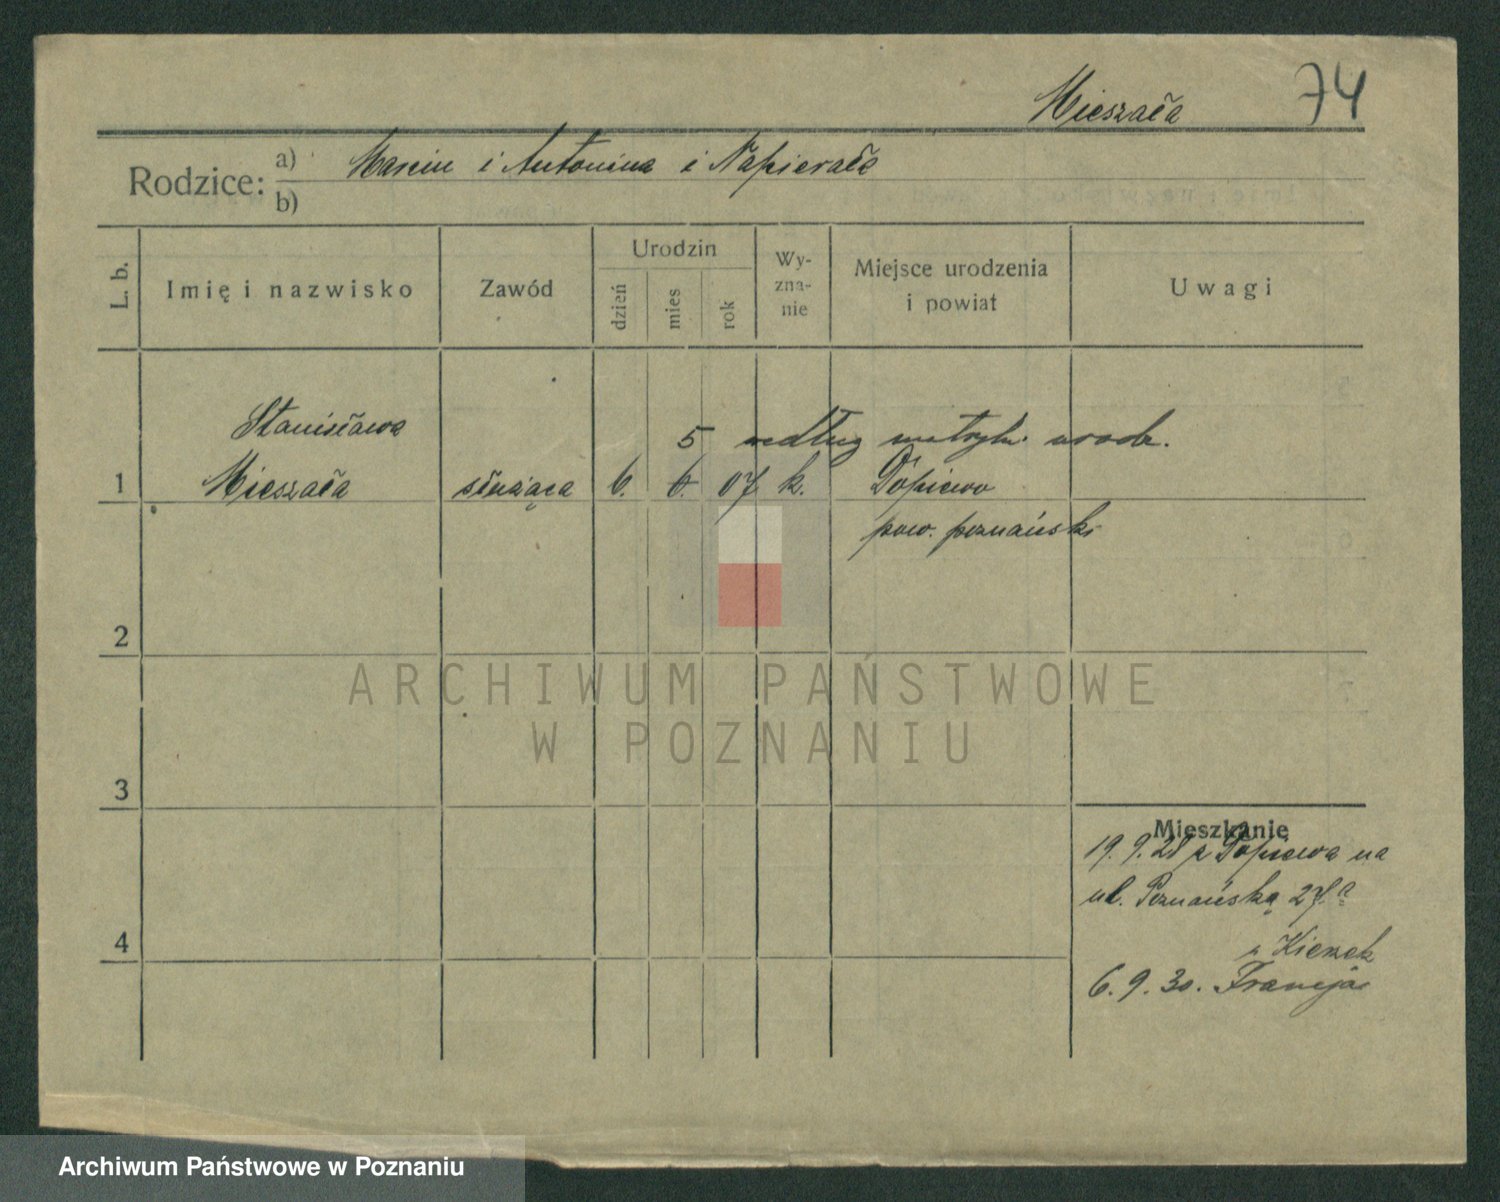 Mieszała 74
Rodzice: a) Marcin i Antonina i Napierała
b)
L. b. Imię i nazwisko Zawód Urodzin dzień mies rok Wy-zna-nie Miejsce urodzenia i powiat Uwagi
Stanisława 5 według metryki urodz.
1 Mieszała służąca 6. 6. 07 k. Dopiewo
pow. poznański
2
ARCHIWUM PAŃSTWOWE
W POZNANIU
3
Mieszkanie
19.9.28 z Dopiewa na
ul. Poznańską 27.
4
z Kiekrz
6.9.30. Francja
Archiwum Państwowe w Poznaniu